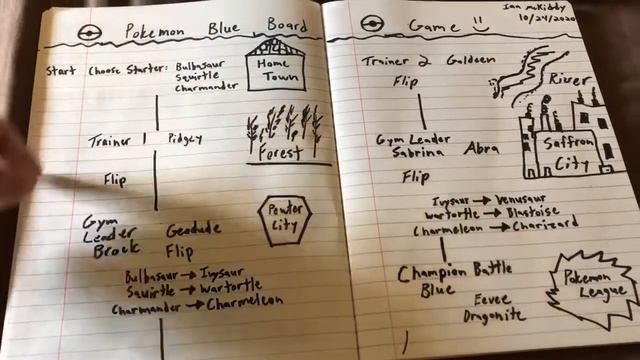 Pokemon Blue Board
Start Choose Starter: Bulbasaur
Squirtle
Charmander
Home
Town
Trainer 1 Pidgey
Forest
Flip
Gym
Leader
Brock
Geodude
Flip
Pewter
City
Bulbasaur → Ivysaur
Squirtle → Wartortle
Charmander → Charmeleon
Game
Ian McKiddy
10/24/2020
Trainer 2 Goldeen
Flip
River
Gym Leader
Sabrina
Abra
Saffron
City
Flip
Ivysaur → Venusaur
Wartortle → Blastoise
Charmeleon → Charizard
Champion Battle
Blue
Eevee
Dragonite
Pokemon
League